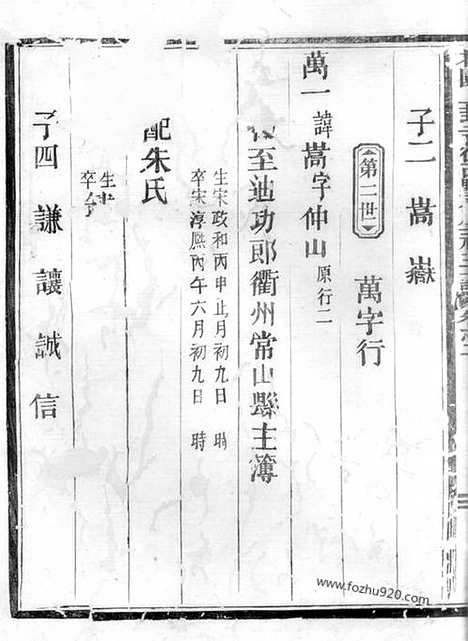 子二 嵩 嶽
第二世 萬字行
萬一 諱嵩字仲山 原行二
至迪功郎衢州常山縣主簿
生宋政和丙申正月初九日 時
卒宋淳熙丙午六月初九日 時
配朱氏
生
卒
子四 謙 讓 誠 信
www.fozhu920.com